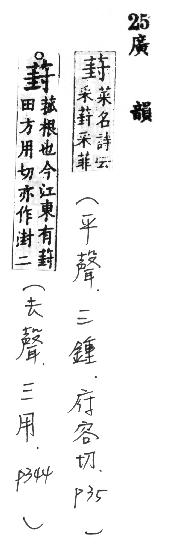 25廣韻
葑菜名詩云采葑采菲(平聲.三鍾.府容切.P35)
葑菰根也今江東有葑田方用切亦作湗二(去聲.三用.P344)